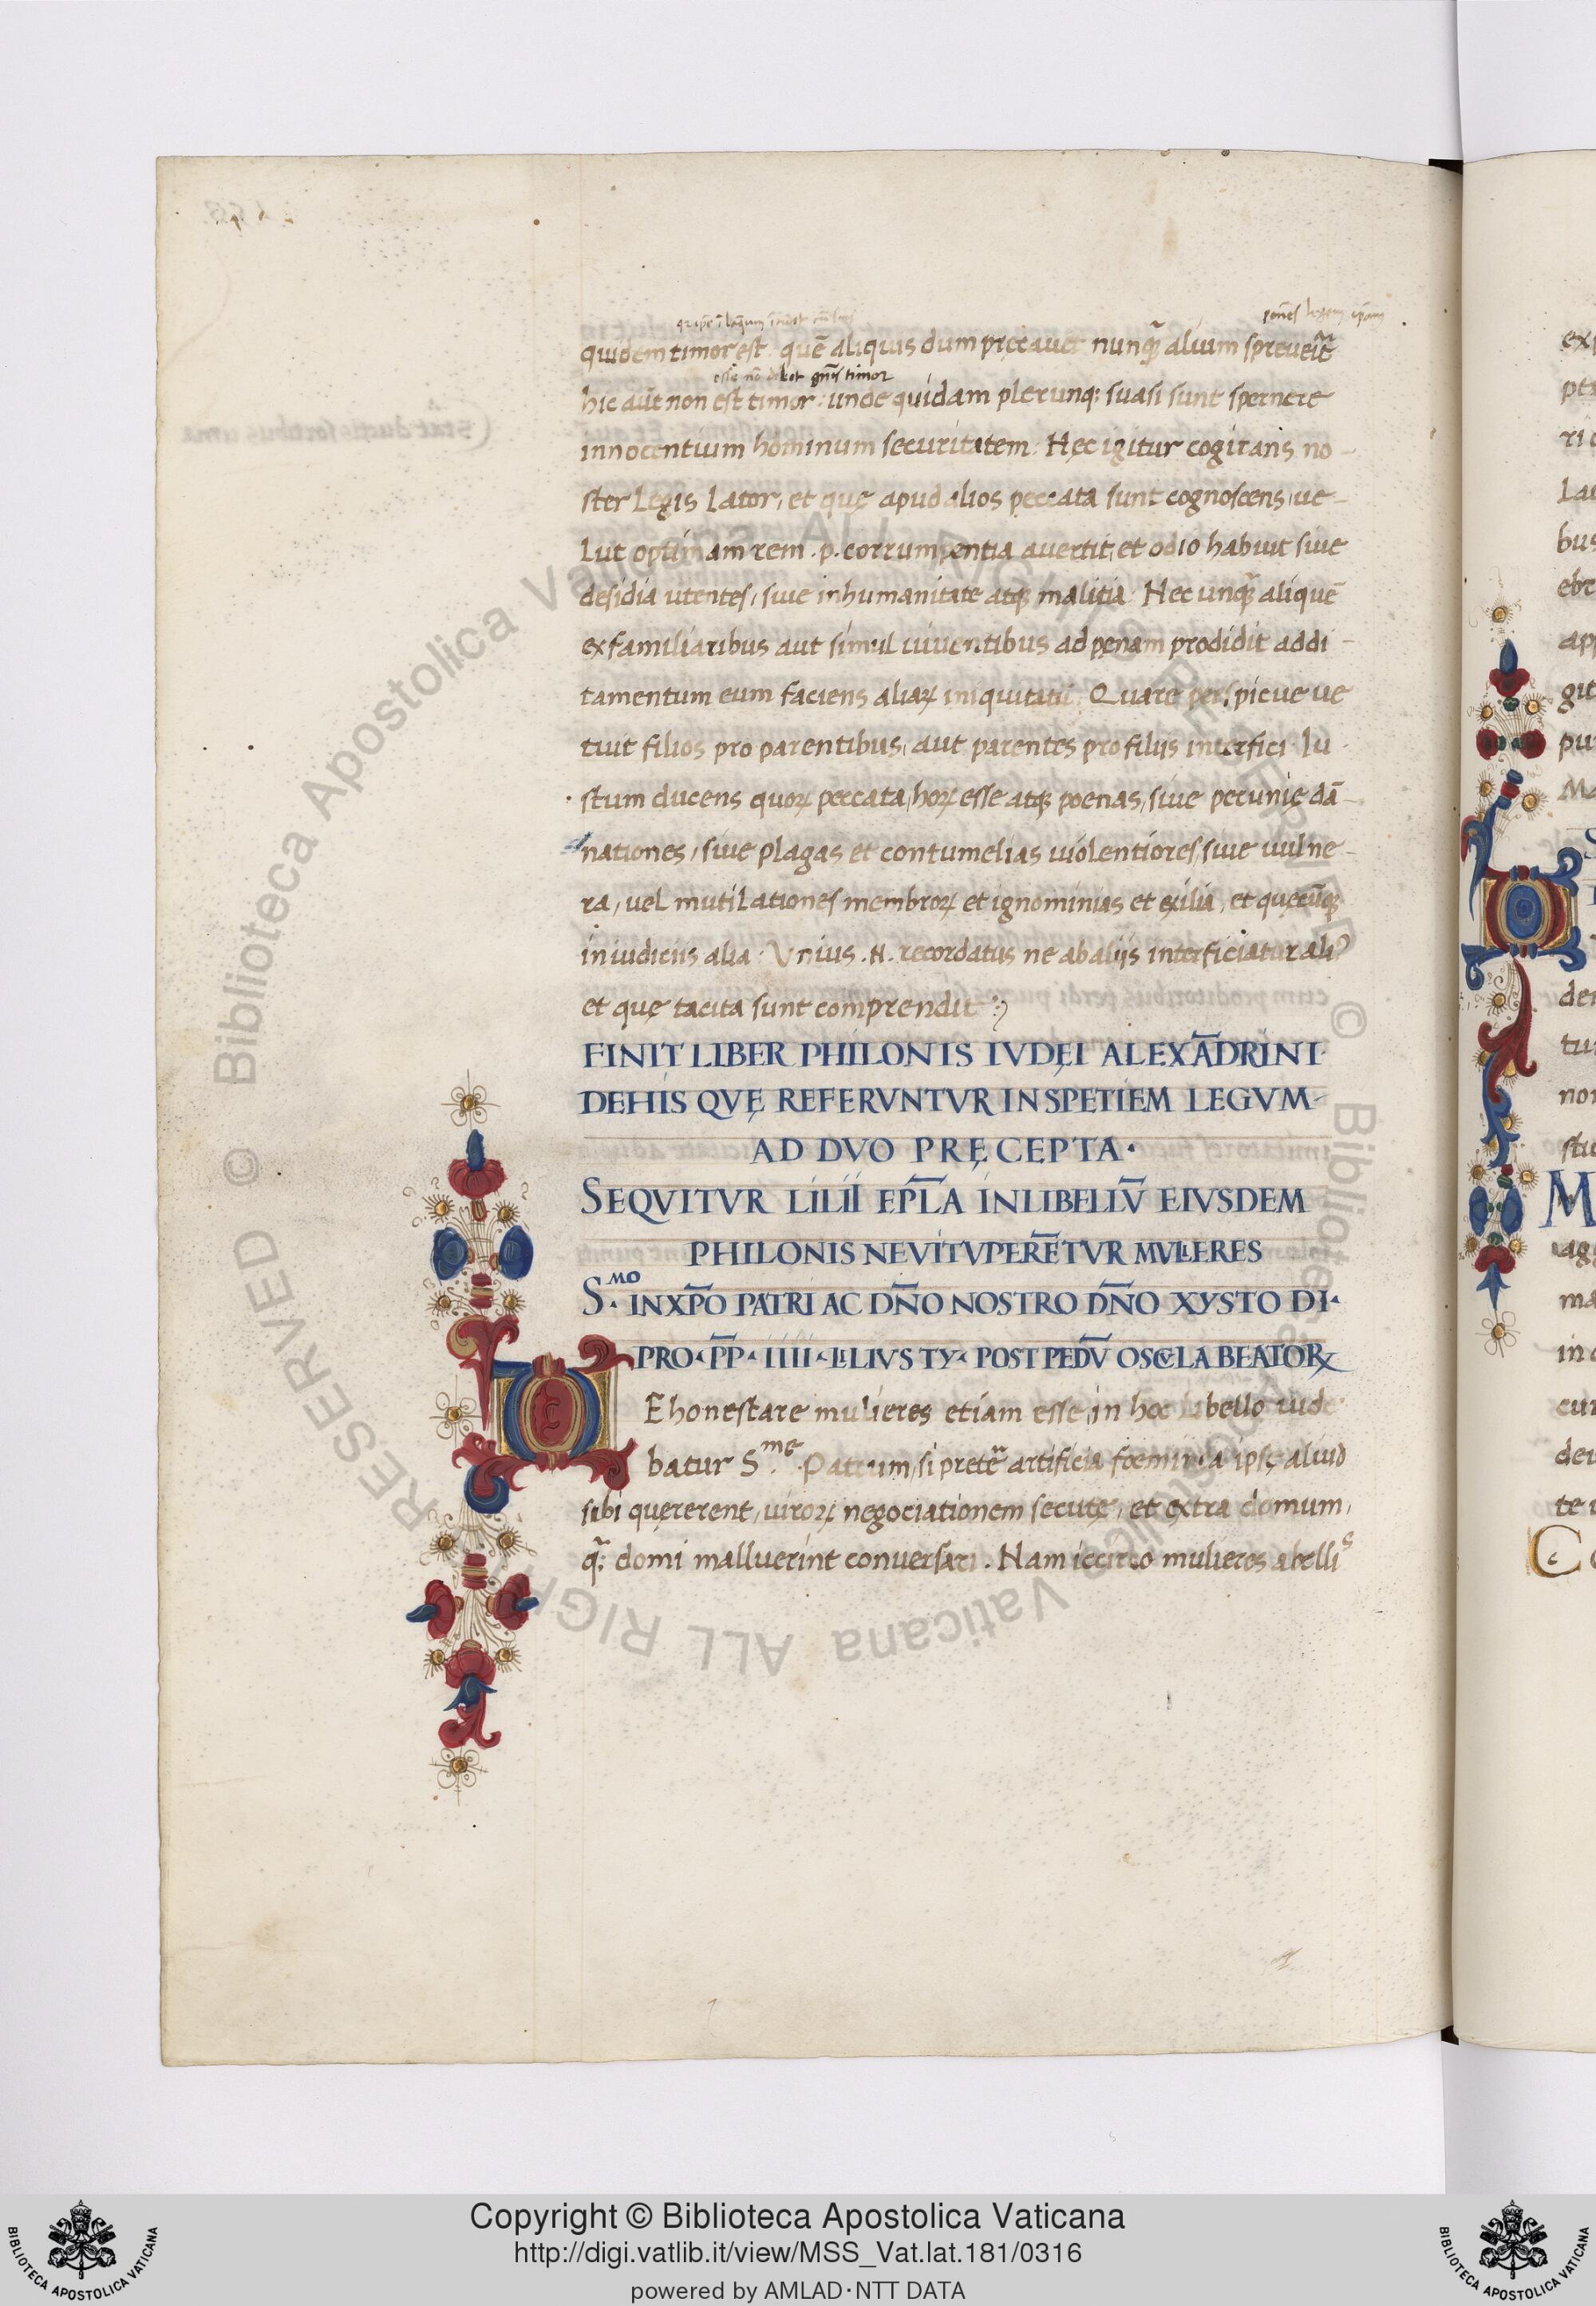 quidem timor est. quē aliquis dum pręcauet nunq̄ᷓ alium spreuer̄it
esse nō debet gn̄is timor
hic aūt non est timor: unde quidam plerunq; suasi sunt spernere
innocentium hominum securitatem. Hęc igitur cogitans no-
ster Legis Lator, et quę apud alios peccata sunt cognoscens, ue-
Lut optimam rem .p. corrumpentia auertit, et odio habuit siue
desidia utentes, siue inhumanitate atqꝫ malitia. Nec unqᷓꝫ aliquē
ex familiaribus aut simul uiuentibus ad pęnam prodidit addi-
tamentum eum faciens aliaꝝ iniquitatū. Quare perspicue ue
tuit filios pro parentibus, aut parentes pro filiis interfici. Iu-
stum ducens quoꝝ peccata, hoꝝ esse atqꝫ poenas, siue pecunię dā-
nationes, siue plagas et contumelias uiolentiores, siue uulne-
ra, uel mutiLationes membroꝝ et ignominias et exilia, et quęcūqꝫ
in iudiciis alia. Vnius .N. recordatus ne ab aliis interficiatur ali
et quę tacita sunt comprendit:)
FINIT LIBER PHILONIS IVDĘI ALEXĀDRINI
DEHIS QVĘ REFERVNTVR IN SPETIEM LEGVM
AD DVO PRĘCEPTA.
SEQVITVR LILII EPL̄A IN LIBELLV̄ EIVSDEM
PHILONIS NE VITVPERĒTVR MVLIERES
S.MO IN XP̄O PATRI AC DN̄O NOSTRO DN̄O XYSTO DI.
PRO. P̄P. IIII. LILIVS TY. POST PEDV̄ OSCVLA BEATOꝜ
Ehonestare mulieres etiam esse, in hoc libello uide
batur S.me Patrum, si pretē artificia foeminea ipsę aliud
sibi quęrerent, uiroꝝ negociationem secutę, et extra domum,
qᷓ; domi malluerint conuersari. Nam iccirco mulieres abellis
Copyright © Biblioteca Apostolica Vaticana
http://digi.vatlib.it/view/MSS_Vat.lat.181/0316
powered by AMLAD·NTT DATA
BIBLIOTECA APOSTOLICA VATICANA
BIBLIOTECA APOSTOLICA VATICANA
© Biblioteca Apostolica Vaticana ALL RIGHTS RESERVED
© Biblioteca Apostolica Vaticana ALL RIGHTS RESERVED